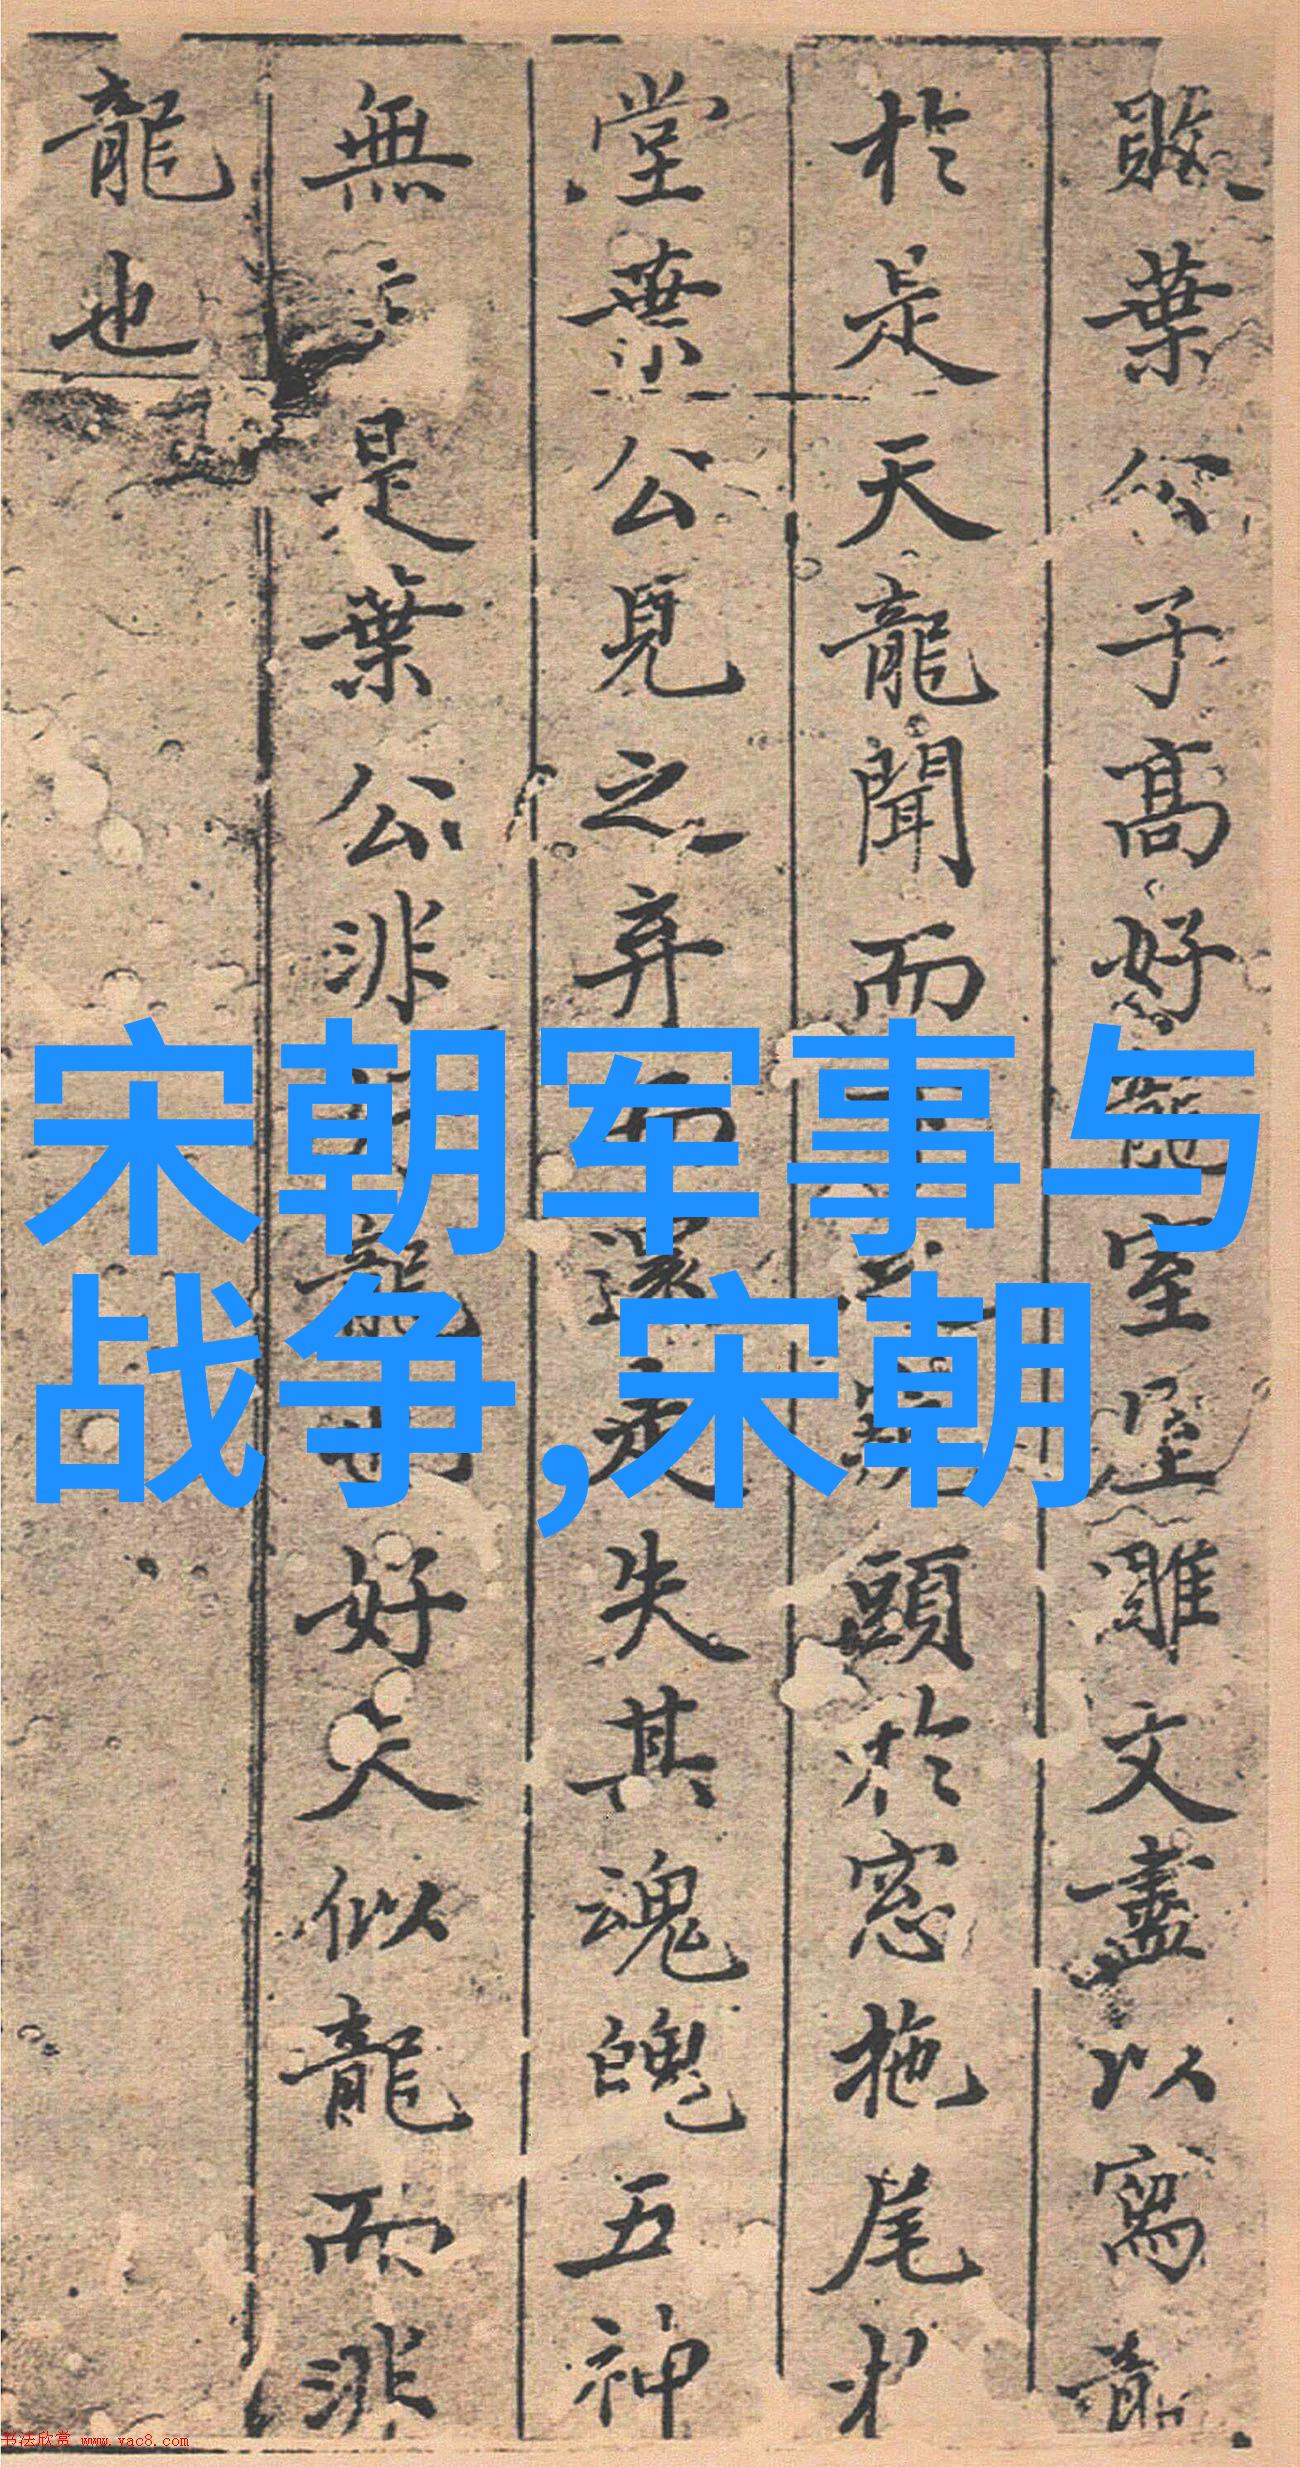 叶公子高好龍室屋雕文盡以寫龍
於是天龍聞而下之窺頭於窓拖尾於
堂葉公見之弃而還走失其魂魄五神
無主是葉公非好龍也好夫似龍而非
龍也
宋朝军事与
战争,宋朝
书法欣赏 www.yac8.com